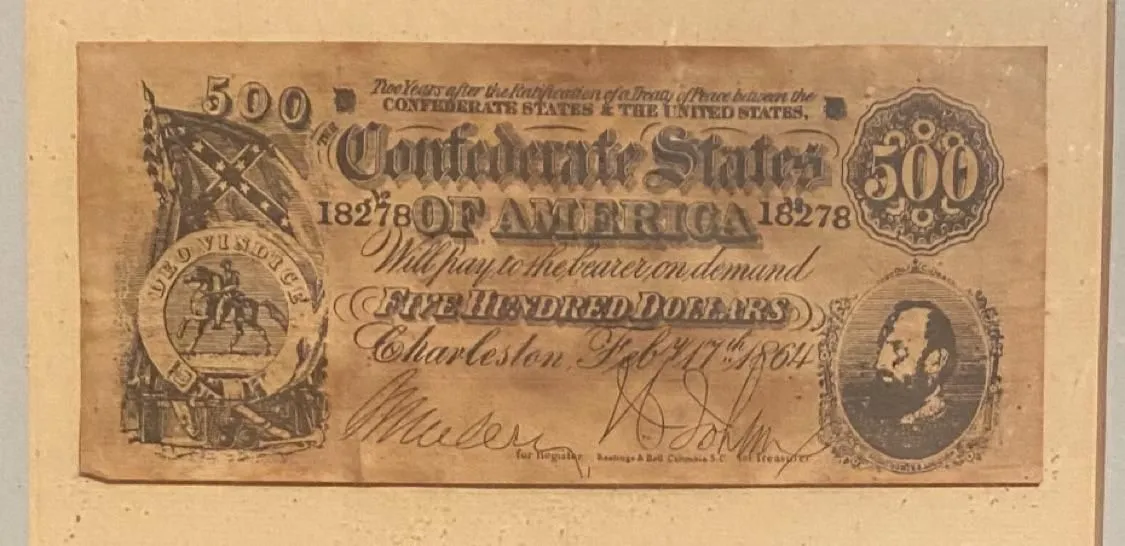 500
Two Years after the Ratification of a Treaty of Peace between the
CONFEDERATE STATES & THE UNITED STATES,
THE
Confederate States
500
18278 OF AMERICA 18278
Will pay to the bearer on demand
DEO VINDICE
FIVE HUNDRED DOLLARS
Charleston, Feby 17th, 1864
for Register
Keatinge & Ball Columbia S.C.
for Treasurer